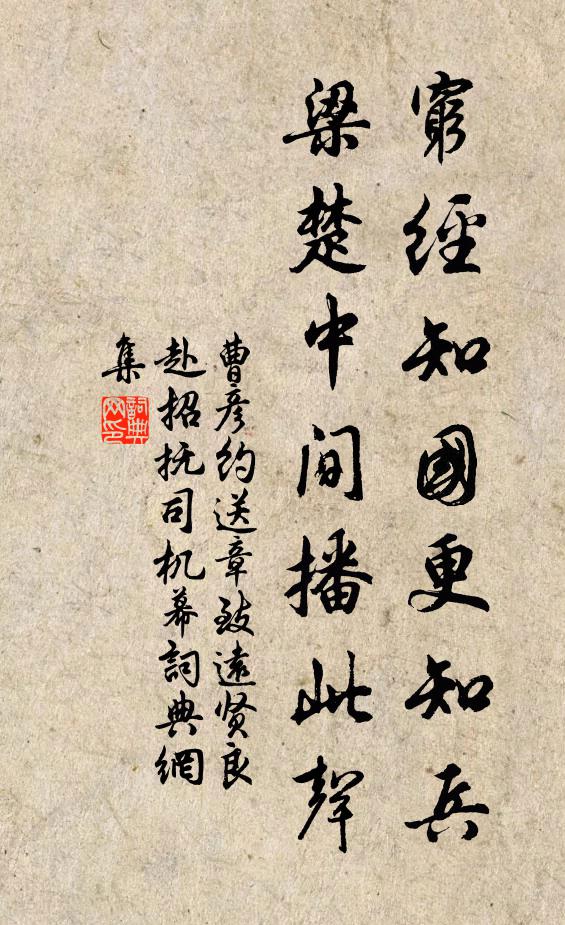 窮經知國更知兵
梁楚中间播此聲
曹彦約送章致遠贤良
赴招抚司机幕詞典網
集
詞典网印